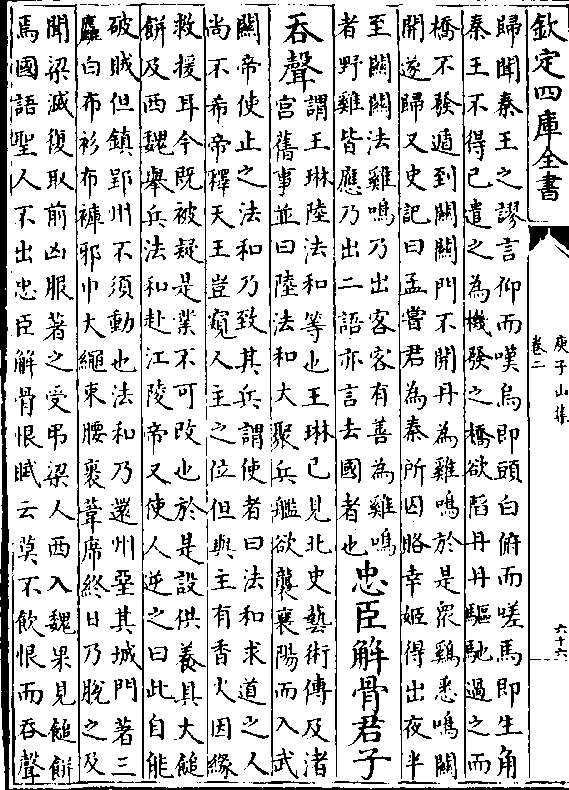 欽定四庫全書
庾子山集
卷二
六十六
歸聞秦王之謬言仰而嘆烏即頭白俯而嗟馬即生角
秦王不得已遣之為機發之橋欲陷丹丹驅馳過之而
橋不發遁到關關門不開丹為雞鳴於是衆鷄悉鳴關
開遂歸又史記曰孟嘗君為秦所囚賂幸姬得出夜半
至關關法雞鳴乃出客客有善為雞鳴
者野雞皆應乃出二語亦言去國者也
忠臣解骨君子
吞聲
謂王琳陸法和等也王琳已見北史藝術傳及渚
宫舊事並曰陸法和大聚兵艦欲襲襄陽而入武
關帝使止之法和乃致其兵謂使者曰法和求道之人
尚不希帝釋天王豈窺人主之位但與主有香火因緣
救援耳今既被疑是業不可改也於是設供養具大䭔
餅及西魏舉兵法和赴江陵帝又使人逆之曰此自能
破賊但鎮郢州不須動也法和乃還州堊其城門著三
麤白布衫布褲邪巾大繩束腰裹葦席終日乃脫之及
聞梁滅復取前凶服著之受弔梁人西入魏果見䭔餅
焉國語聖人不出忠臣解骨恨賦云莫不飲恨而吞聲